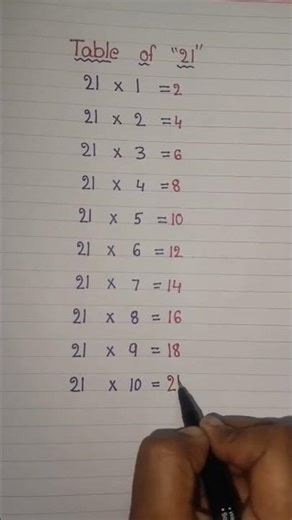 Table of "21"
21 x 1 = 2
21 x 2 = 4
21 x 3 = 6
21 x 4 = 8
21 x 5 = 10
21 x 6 = 12
21 x 7 = 14
21 x 8 = 16
21 x 9 = 18
21 x 10 = 21